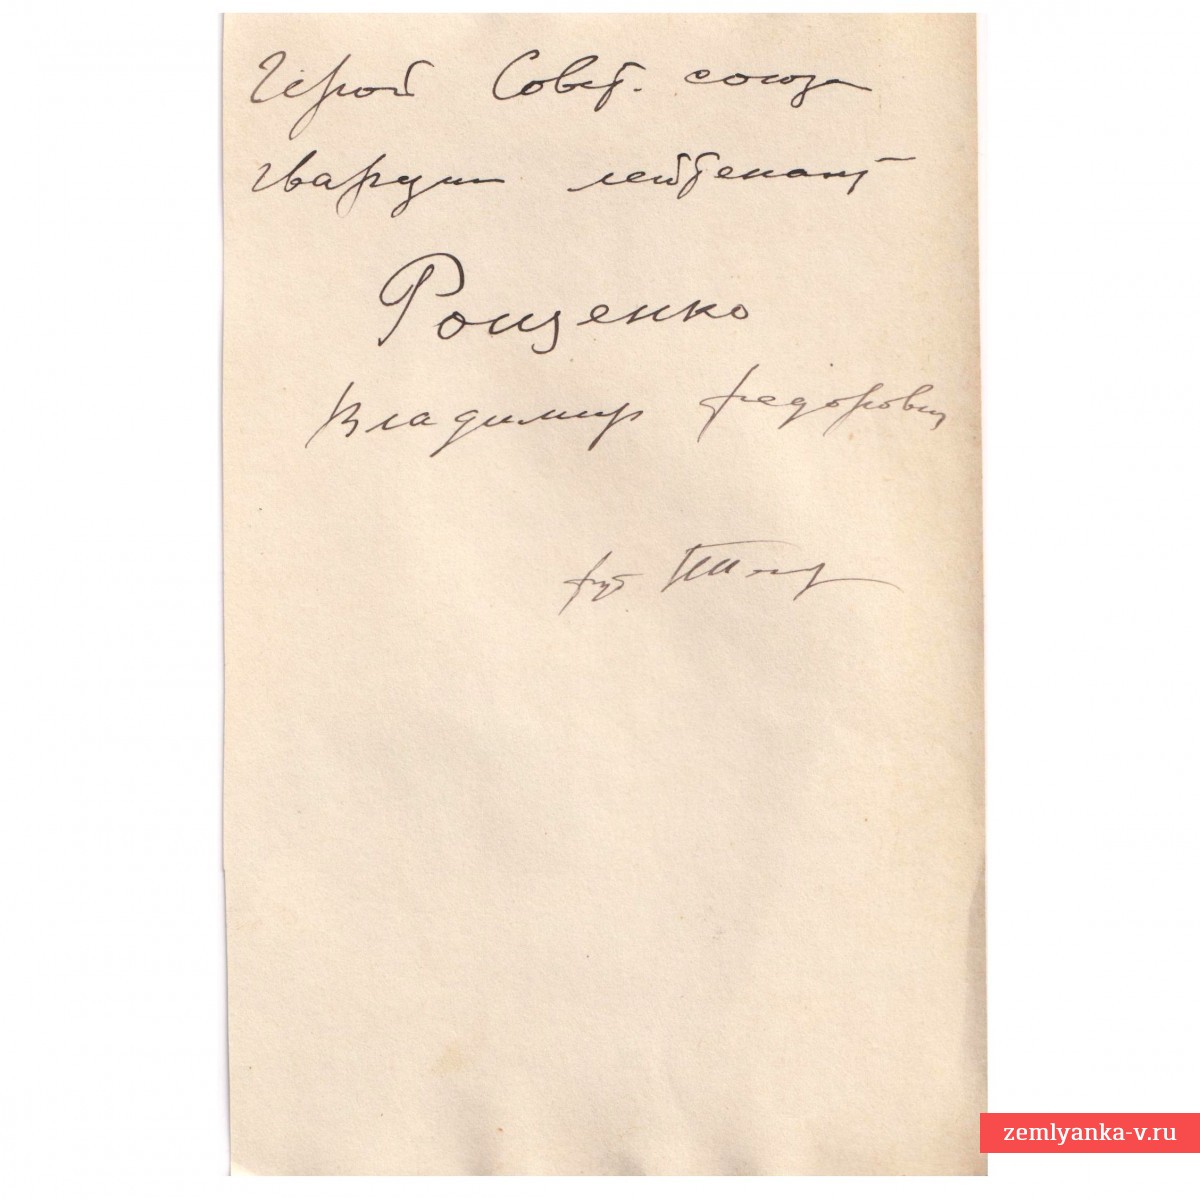 Герой Совет. союза
гвардии лейтенант
Рощенко
Владимир Федорович
zemlyanka-v.ru